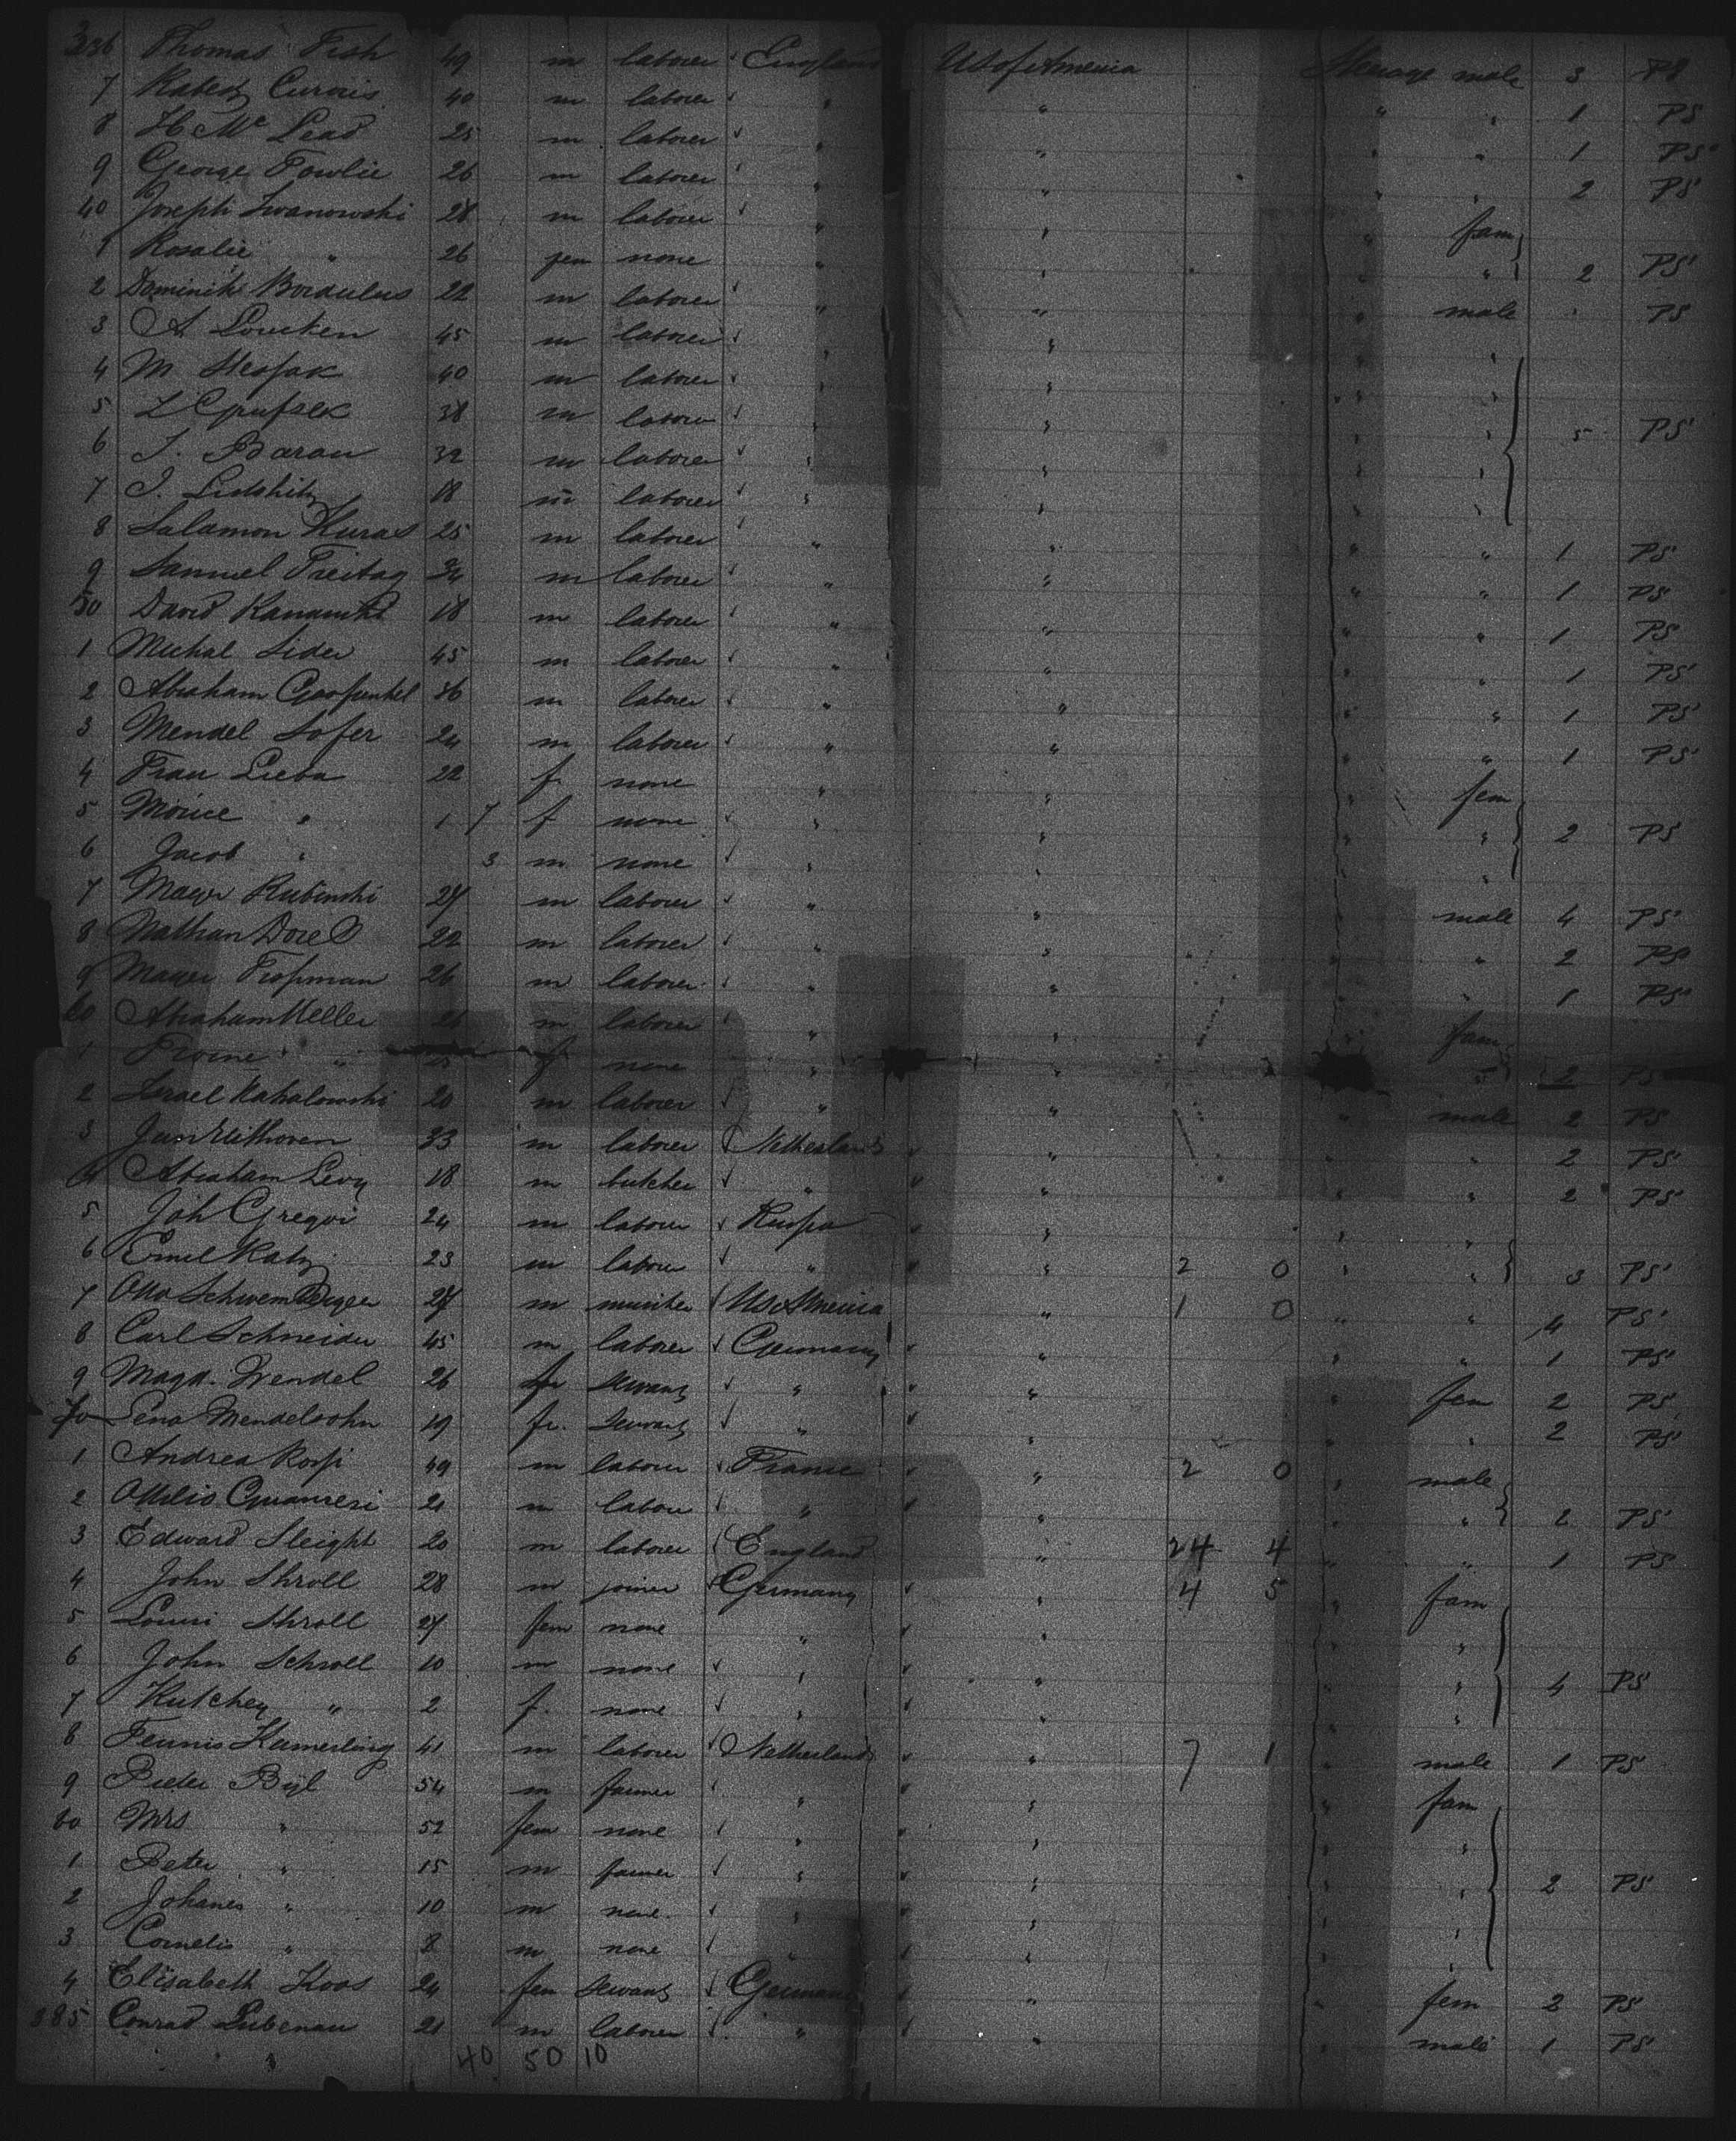 336 Thomas Fish 49 m laborer England US of America Steerage male 3 PS
7 Curvis 40 m laborer " " " " 1 PS
8 H Mc Lead 25 m laborer " " " " 1 PS
9 George Fowlie 26 m laborer " " " " 2 PS
40 Joseph Iwanowski 28 m laborer " " " fam
1 Rosalie " 26 fem none " " " " 2 PS
2 Dominik Bordulus 22 m laborer " " " male PS
3 A 45 m laborer " " " "
4 M 40 m laborer " " " "
5 L 38 m laborer " " " " 5 PS
6 J. Baran 32 m laborer " " " "
7 J. 18 m laborer " " "
8 Salamon Kuras 25 m laborer " " " " 1 PS
9 Samuel Freitag 34 m laborer " " " " 1 PS
50 David 18 m laborer " " " " 1 PS
1 Michal Sider 45 m laborer " " " " 1 PS
2 Abraham Garfunkel 36 m laborer " " " " 1 PS
3 Mendel Sofer 24 m laborer " " " " 1 PS
4 Frau Lieba 22 f none " " " fem
5 Morice " 1 7 f none " " " 2 PS
6 Jacob " 3 m none " " "
7 Mayer Rubinski 27 m laborer " " male 4 PS
8 Nathan 22 m laborer " " " 2 PS
9 Mayer 26 m laborer " " " " 1 PS
60 Abraham Heller 26 m laborer " " " fam
1 " 25 f none " " " 2 PS
2 Israel Kahalowski 20 m laborer " " " male 2 PS
3 Jan 33 m laborer Netherlands " " " 2 PS
4 Abraham Levy 18 m butcher " " " " 2 PS
5 Joh Gregori 24 m laborer Russia " " "
6 Emil Katz 23 m laborer " " 2 0 " " 3 PS
7 Otto 27 m US America " 1 0 " " 4 PS
8 Carl Schneider 45 m laborer Germany " " " 1 PS
9 Magd. Wendel 26 fe servant " " " fem 2 PS
70 Lena Mendelsohn 19 fe. servant " " " " 2 PS
1 Andrea Rossi 49 m laborer France " 2 0 " male
2 Attilio 21 m labore " " " " 2 PS
3 Edward Sleight 20 m laborer England " 24 4 " " 1 PS
4 John Shroll 28 m joiner Germany " 4 5 " fam
5 Louri Shroll 27 fem none " " "
6 John Schroll 10 m none " " " 4 PS
7 Kutchey " 2 f. none " " "
8 Teunis Kamerling 41 m laborer Netherlands " 7 1 male 1 PS
9 Pieter Bijl 54 m farmer " " " fam
60 Mrs " 52 fem none " " "
1 Peter " 15 m farmer " " " " 2 PS
2 Johanes " 10 m none " " " "
3 Cornelis " 8 m none " " "
4 Elisabeth Koos 24 fem servant Germany " fem 2 PS
385 Conrad Lubenau 21 m laborer " " " male 1 PS
40 50 10